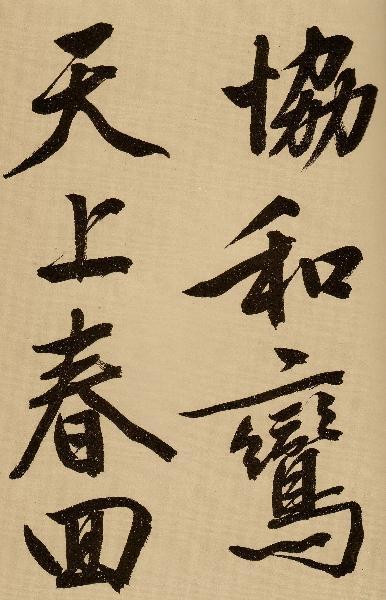 協和鸞
天上春回